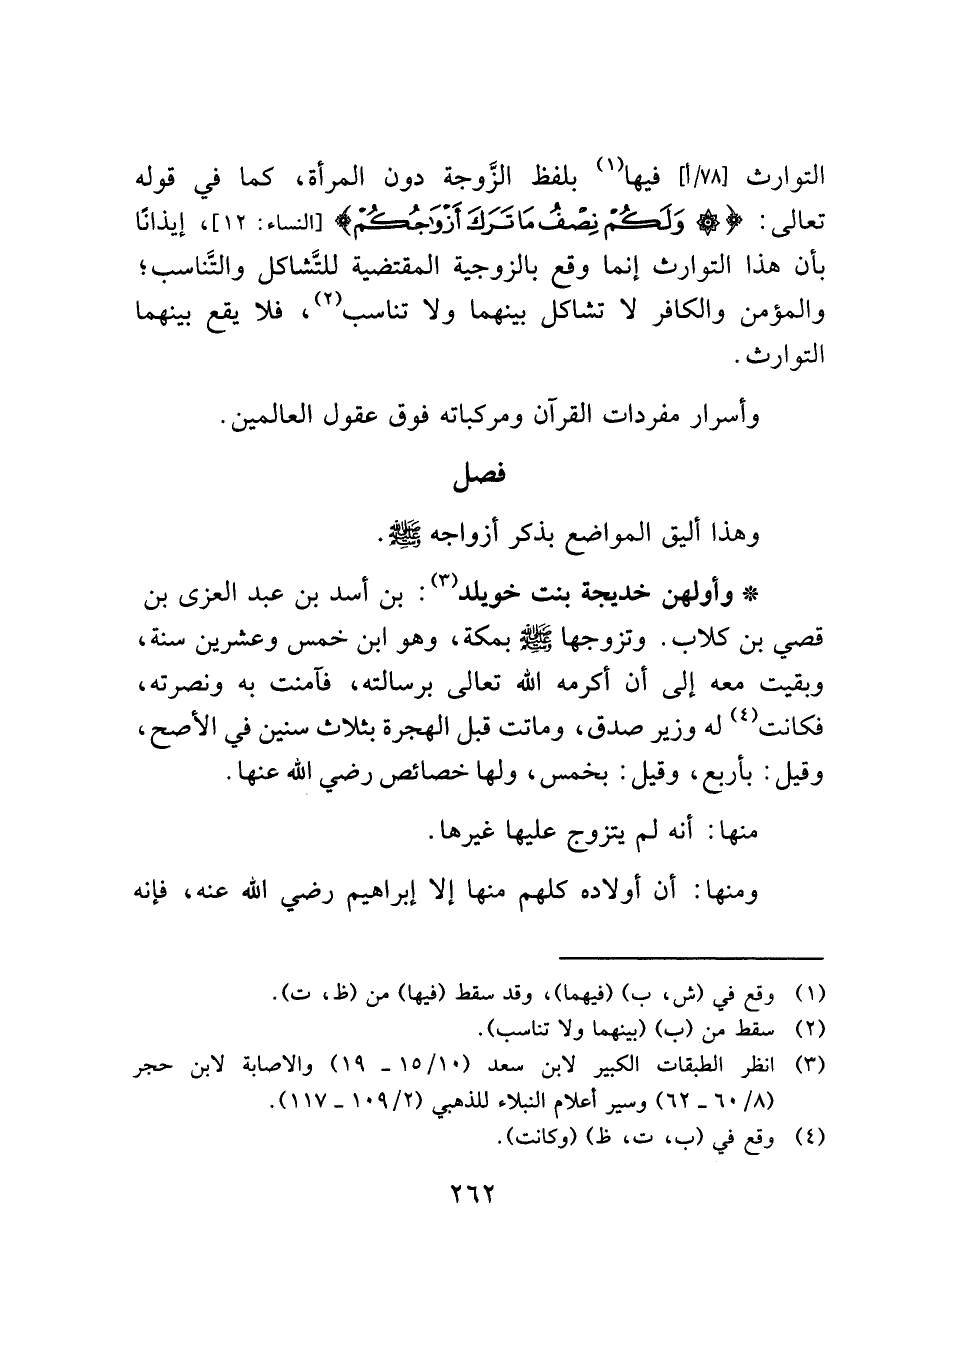 التوارث [٧٨/أ] فيها(١) بلفظ الزَّوجة دون المرأة، كما في قوله
تعالى: ﴿۞ وَلَكُمْ نِصْفُ مَا تَرَكَ أَزْوَاجُكُمْ﴾ [النساء: ١٢]، إيذانًا
بأن هذا التوارث إنما وقع بالزوجية المقتضية للتَّشاكل والتَّناسب؛
والمؤمن والكافر لا تشاكل بينهما ولا تناسب(٢)، فلا يقع بينهما
التوارث.
وأسرار مفردات القرآن ومركباته فوق عقول العالمين.
فصل
وهذا أليق المواضع بذكر أزواجه ﷺ.
* وأولهن خديجة بنت خويلد(٣): بن أسد بن عبد العزى بن
قصي بن كلاب. وتزوجها ﷺ بمكة، وهو ابن خمس وعشرين سنة،
وبقيت معه إلى أن أكرمه الله تعالى برسالته، فآمنت به ونصرته،
فكانت(٤) له وزير صدق، وماتت قبل الهجرة بثلاث سنين في الأصح،
وقيل: بأربع، وقيل: بخمس، ولها خصائص رضي الله عنها.
منها: أنه لم يتزوج عليها غيرها.
ومنها: أن أولاده كلهم منها إلا إبراهيم رضي الله عنه، فإنه
(١) وقع في (ش، ب) (فيهما)، وقد سقط (فيها) من (ظ، ت).
(٢) سقط من (ب) (بينهما ولا تناسب).
(٣) انظر الطبقات الكبير لابن سعد (١٠/ ١٥ ـ ١٩) والاصابة لابن حجر
(٨/ ٦٠ ـ ٦٢) وسير أعلام النبلاء للذهبي (٢/ ١٠٩ ـ ١١٧).
(٤) وقع في (ب، ت، ظ) (وكانت).
٢٦٢